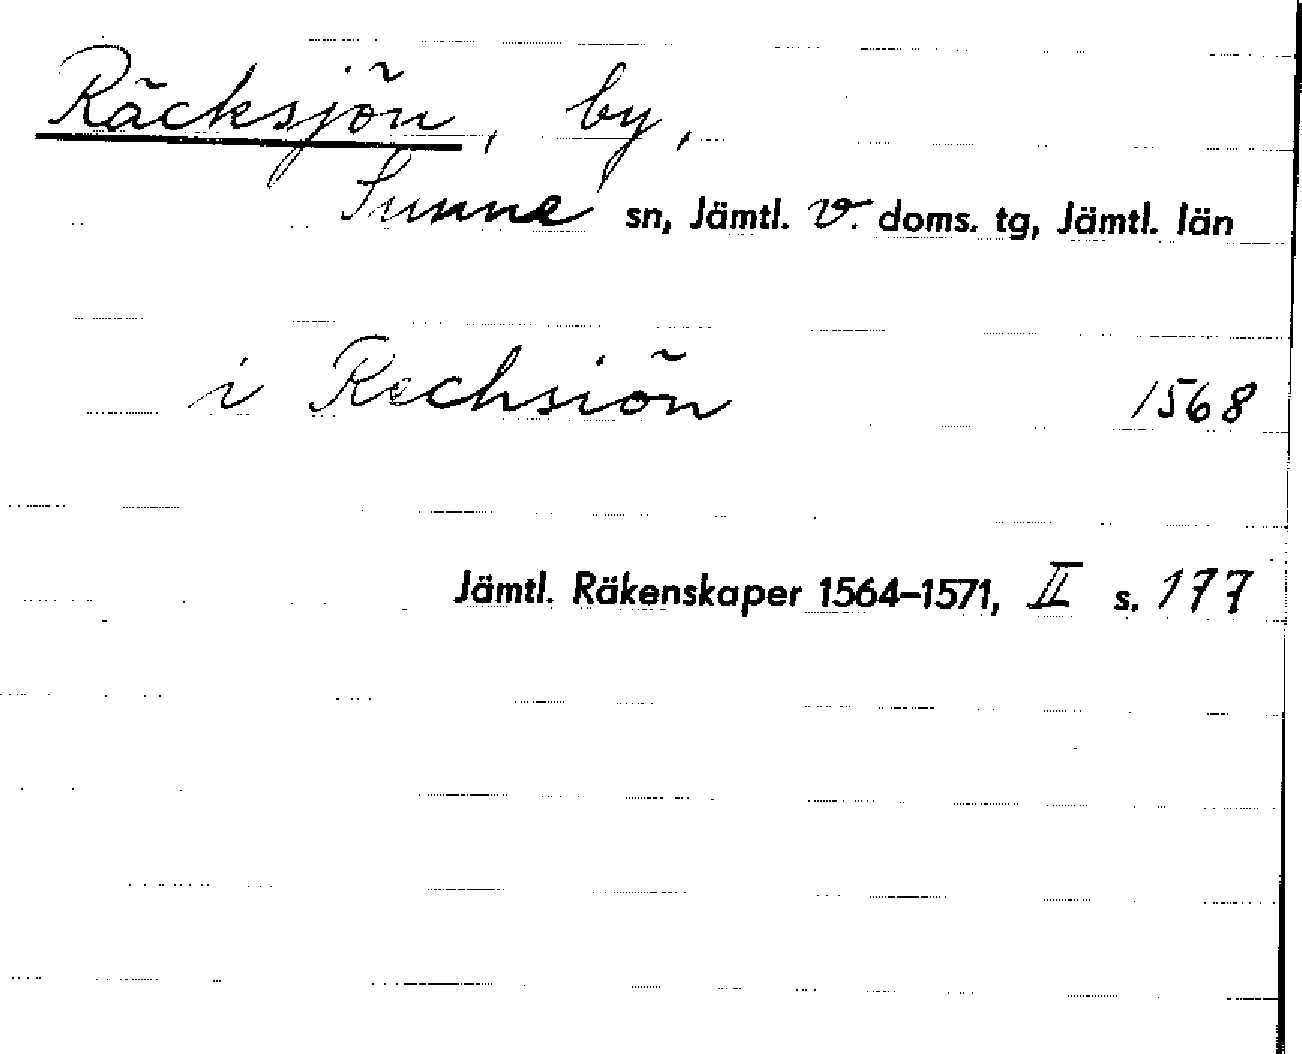 Räcksjön, by,
Sunne sn, Jämtl. v. doms. tg, Jämtl. län
i Rechsiön 1568
Jämtl. Räkenskaper 1564–1571, II s. 177